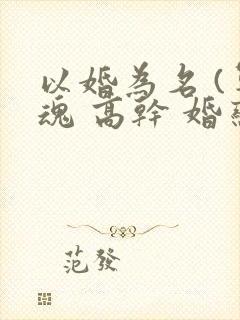 以婚為名(
魂 高幹 婚
范發